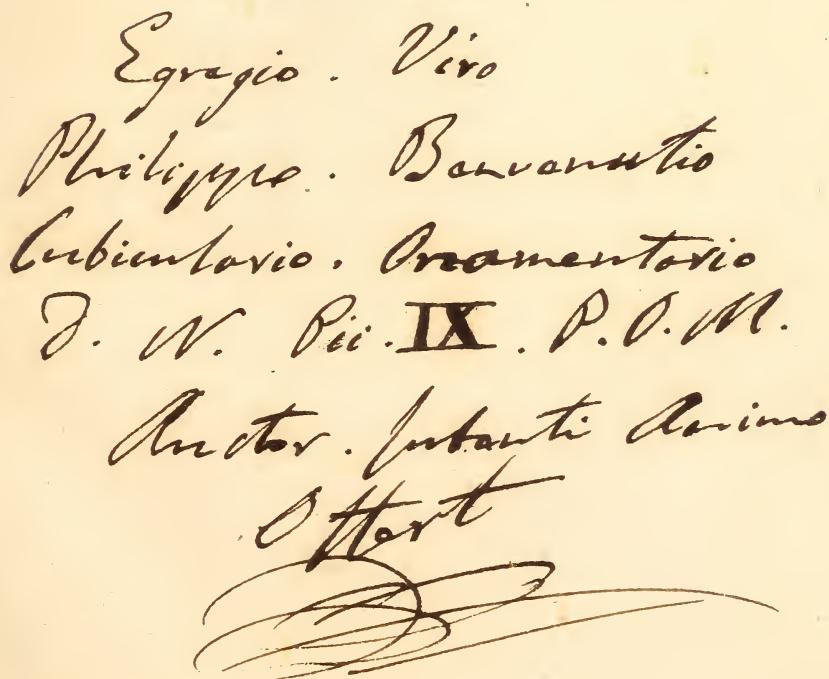 Egregio . Viro
Philippo . Benvenutio
Cubiculario . Ornamentario
D. N. Pii . IX . P. O. M.
Auctor . Lubenti Animo
Offert